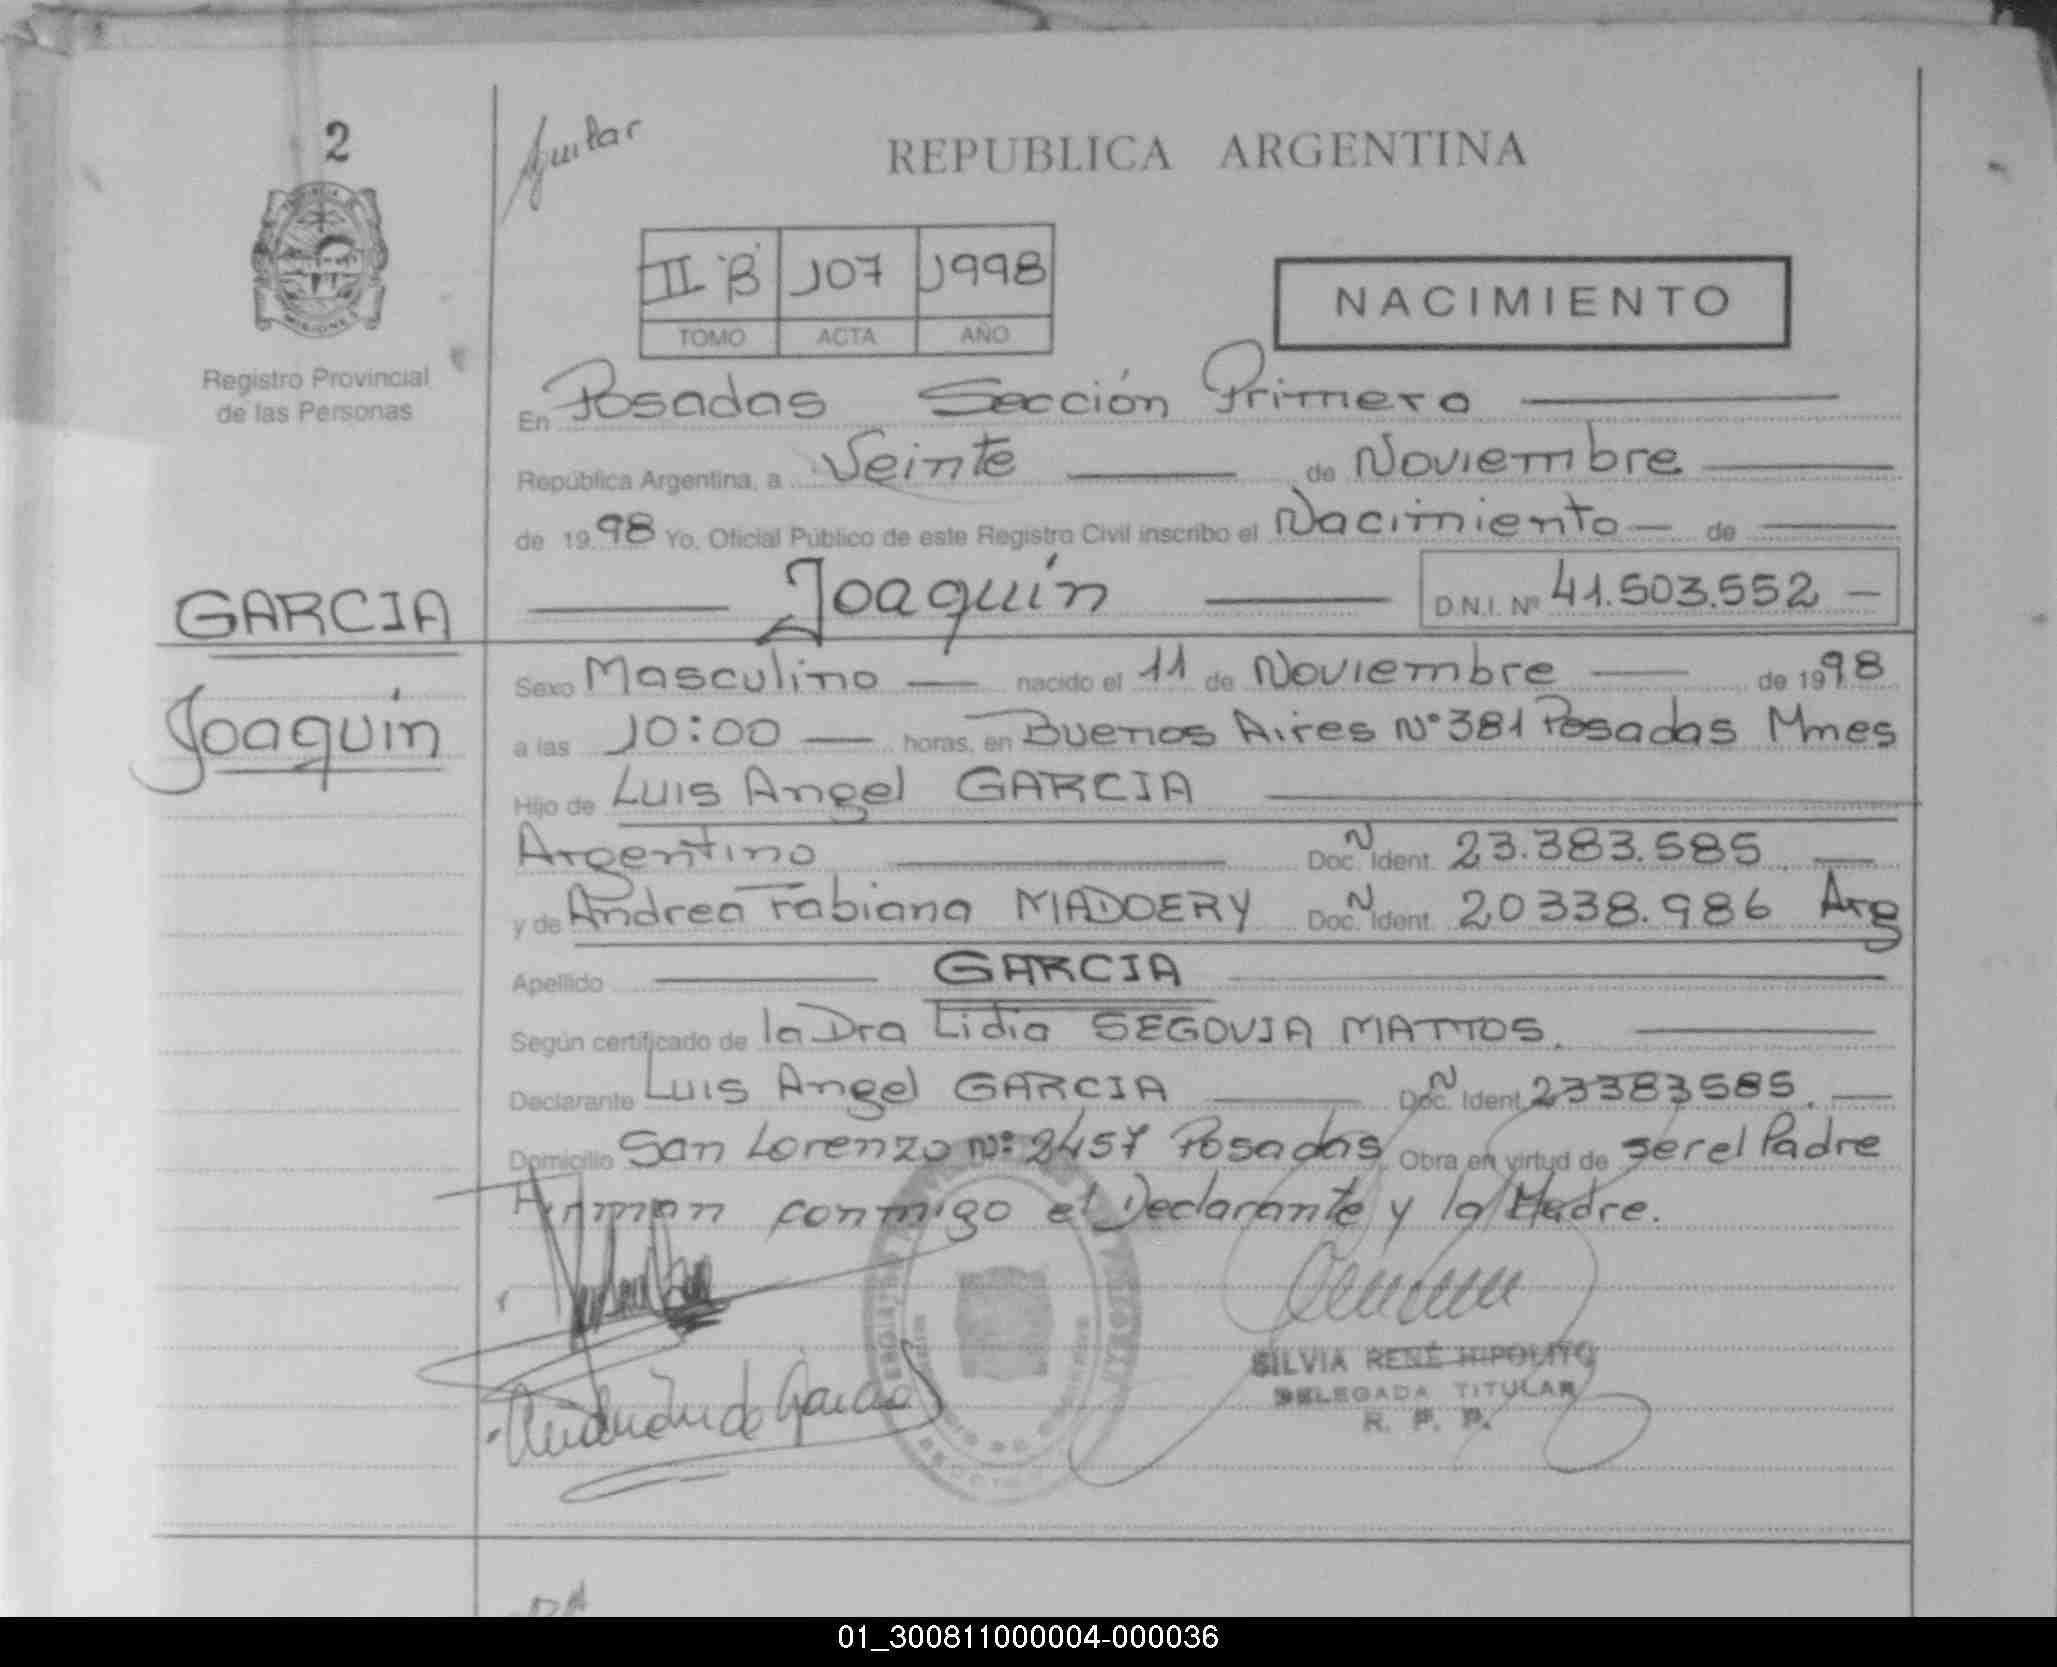 2
Aguilar
REPUBLICA ARGENTINA
II "B" 107 1998
TOMO ACTA AÑO
NACIMIENTO
MISIONES
Registro Provincial
de las Personas
En Posadas Sección Primera
República Argentina, a Veinte de Noviembre
de 1998 Yo, Oficial Público de este Registro Civil inscribo el Nacimiento de
GARCIA
Joaquín
Joaquín D.N.I. Nº 41.503.552
Sexo Masculino nacido el 11 de Noviembre de 1998
a las 10:00 horas, en Buenos Aires Nº 381 Posadas Mnes
Hijo de Luis Angel GARCIA
Argentino Doc. N Ident. 23.383.585
y de Andrea Fabiana MADOERY Doc. N Ident. 20338.986 Arg
Apellido GARCIA
Según certificado de la Dra Lidia SEGOVIA MATTOS.
Declarante Luis Angel GARCIA Doc. N Ident. 23383585.
Domicilio San Lorenzo Nº 2457 Posadas Obra en virtud de ser el Padre
Firman conmigo el Declarante y la Madre.
SILVIA RENÉ HIPOLITO
DELEGADA TITULAR
R. P. P.
01_300811000004-000036